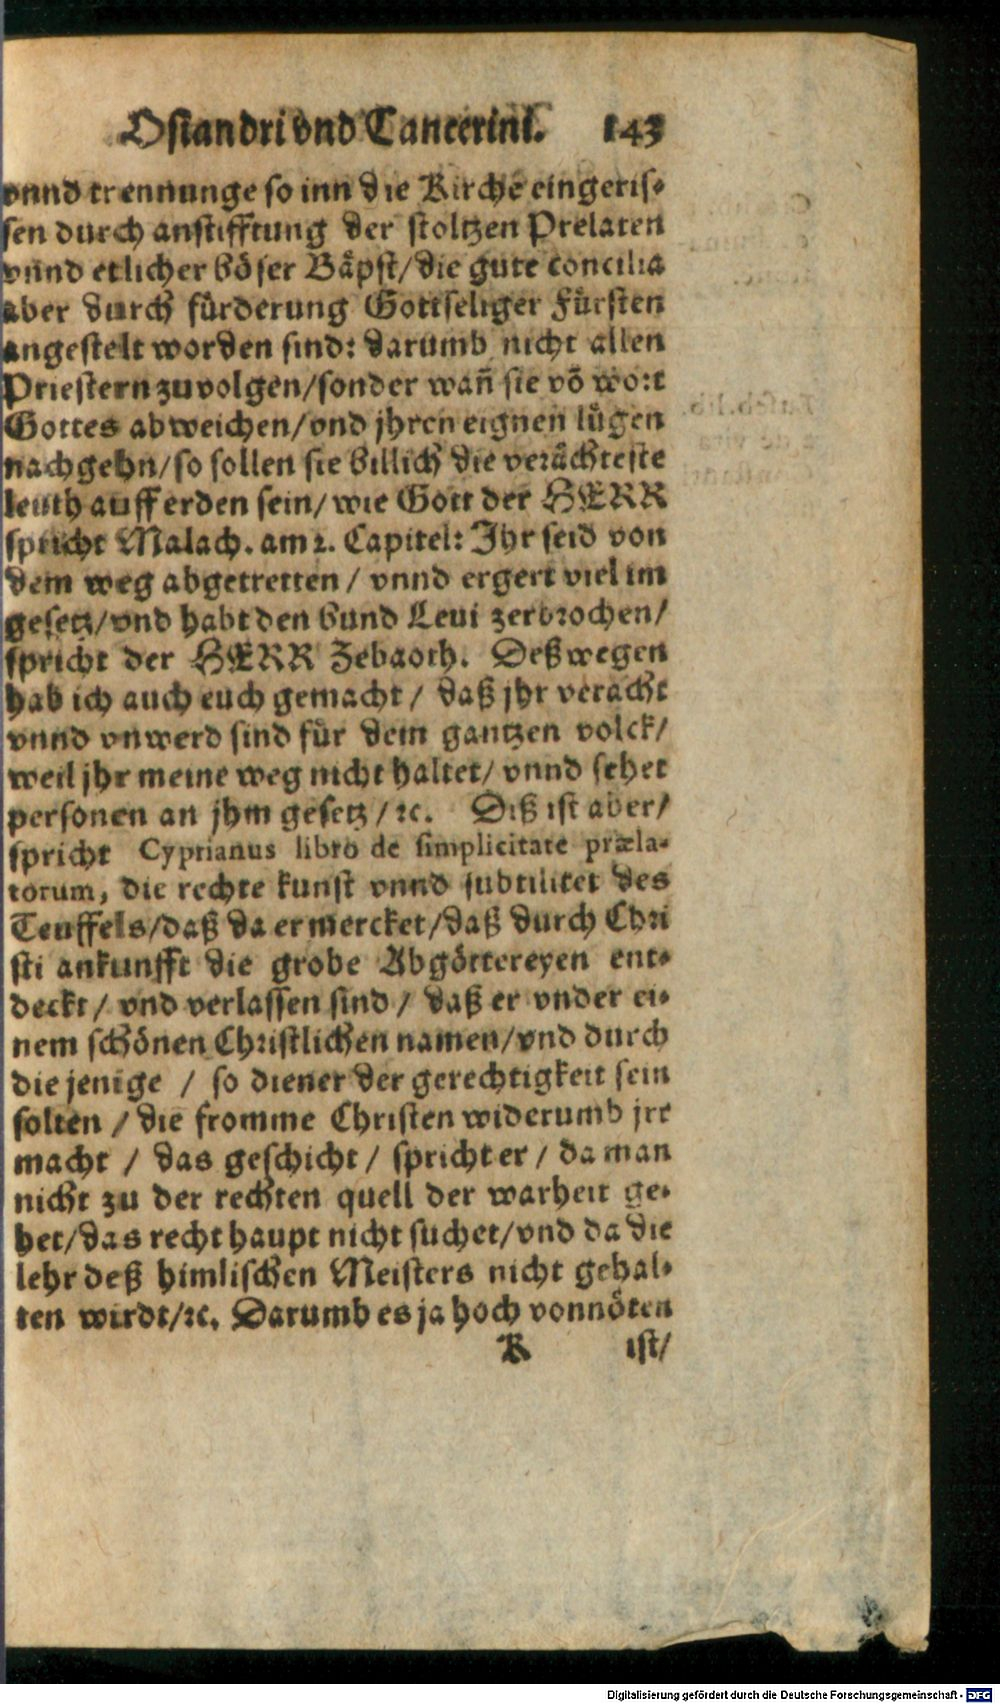 Osiandri vnd Cancerini. 143
vnnd trennunge so inn die Kirche eingeris-
sen durch anstifftung der stoltzen Prelaten
vnnd etlicher böser Bäpst/die gute concilia
aber durch fürderung Gottseliger Fürsten
angestelt worden sind: darumb nicht allen
Priestern zu volgen/sonder wañ sie võ wort
Gottes abweichen/vnd jhren eignen lügen
nachgehn/so sollen sie billich die verächteste
leuth auff erden sein/ wie Gott der HERR
spricht Malach. am 2. Capitel: Ihr seid von
dem weg abgetretten / vnnd ergert viel im
gesetz/vnd habt den bund Leui zerbrochen/
spricht der HERR Zebaoth. Deßwegen
hab ich auch euch gemacht / daß jhr veracht
vnnd vnwerd sind für dem gantzen volck/
weil jhr meine weg nicht haltet/ vnnd sehet
personen an jhm gesetz /ꝛc. Diß ist aber/
spricht Cyprianus libro de simplicitate præla-
torum, die rechte kunst vnnd subtilitet des
Teuffels/daß da er mercket/daß durch Chri
sti ankunfft die grobe Abgöttereyen ent-
deckt / vnd verlassen sind / daß er vnder ei-
nem schönen Christlichen namen/vnd durch
die jenige / so diener der gerechtigkeit sein
solten / die fromme Christen widerumb jrr
macht / das geschicht / spricht er / da man
nicht zu der rechten quell der warheit ge-
het/das recht haupt nicht suchet/vnd da die
lehr deß himlischen Meisters nicht gehal-
ten wirdt/ꝛc. Darumb es ja hoch vonnöten
K ist/
Digitalisierung gefördert durch die Deutsche Forschungsgemeinschaft - DFG